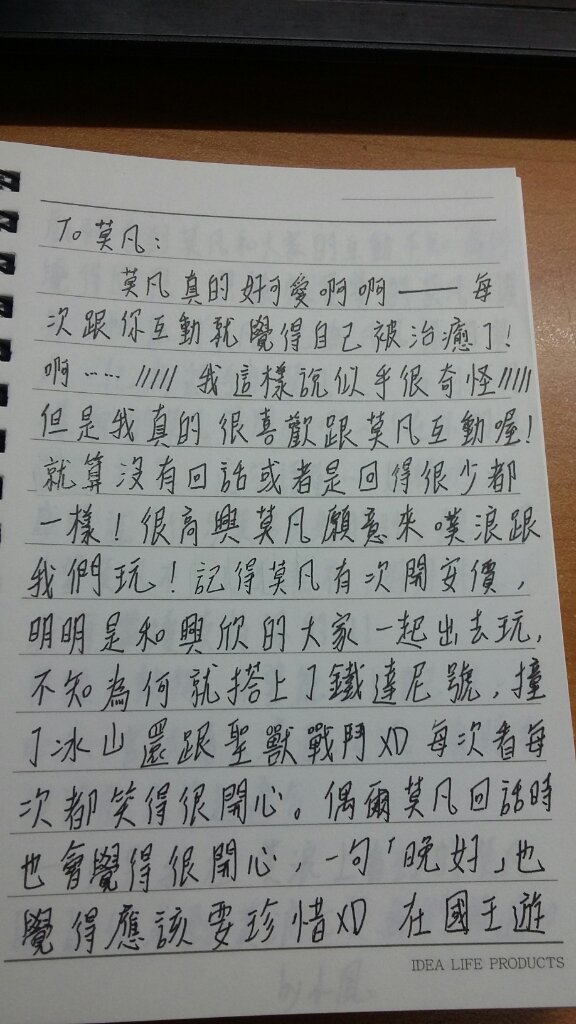 To 莫凡：
莫凡真的好可愛啊啊——每
次跟你互動就覺得自己被治癒了！
啊……///// 我這樣說似乎很奇怪/////
但是我真的很喜歡跟莫凡互動喔！
就算沒有回話或者是回得很少都
一樣！很高興莫凡願意來噗浪跟
我們玩！記得莫凡有次開安價，
明明是和興欣的大家一起出去玩，
不知為何就搭上了鐵達尼號，撞
了冰山還跟聖獸戰鬥XD 每次看每
次都笑得很開心。偶爾莫凡回話時
也會覺得很開心，一句「晚好」也
覺得應該要珍惜XD 在國王遊
IDEA LIFE PRODUCTS